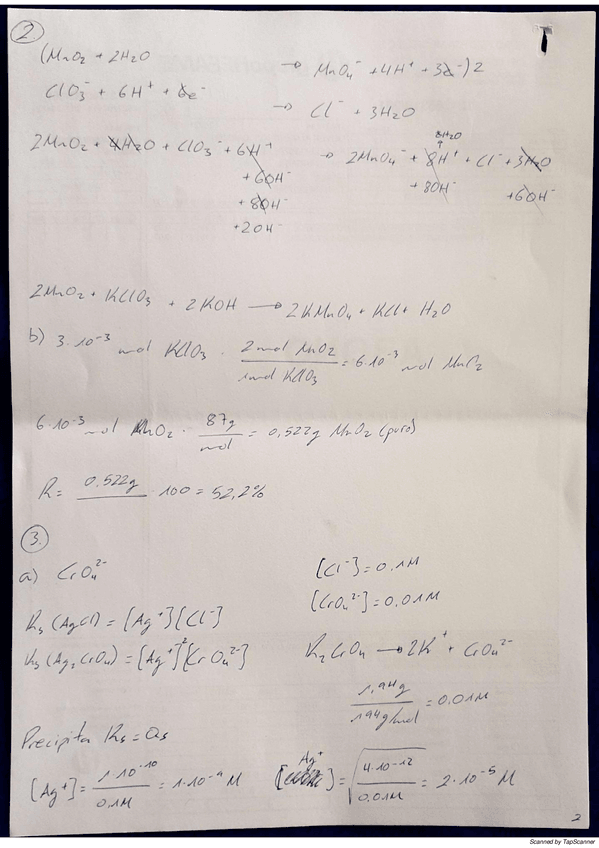 2
(MnO₂ + 2H₂O → MnO₄⁻ + 4H⁺ + 3e⁻)2
ClO₃⁻ + 6H⁺ + 6e⁻ → Cl⁻ + 3H₂O
8H₂O
2MnO₂ + 4H₂O + ClO₃⁻ + 6H⁺ → 2MnO₄⁻ + 8H⁺ + Cl⁻ + 3H₂O
+6OH⁻ +8OH⁻ +6OH⁻
+8OH⁻
+2OH⁻
2MnO₂ + KClO₃ + 2KOH → 2KMnO₄ + KCl + H₂O
b) 3·10⁻³ mol KClO₃ · 2mol MnO₂ / 1mol KClO₃ = 6·10⁻³ mol MnO₂
6·10⁻³ mol MnO₂ · 87g / mol = 0,522g MnO₂ (puro)
R = 0.522g / 100 = 52,2%
3.
a) CrO₄²⁻
[Cl⁻] = 0.1M
[CrO₄²⁻] = 0.01M
Ks (AgCl) = [Ag⁺][Cl⁻]
Ks (Ag₂CrO₄) = [Ag⁺]²[CrO₄²⁻]
K₂CrO₄ → 2K⁺ + CrO₄²⁻
1,94g / 194g/mol = 0.01M
Precipita Ks = Qs
[Ag⁺] = 1·10⁻¹⁰ / 0,1M = 1·10⁻⁹ M
[Ag⁺] = √(4·10⁻¹² / 0.01M) = 2·10⁻⁵ M
2
Scanned by TapScanner